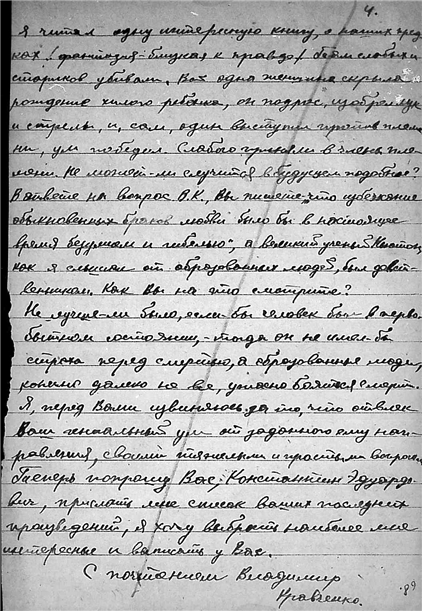 4.
Я читал одну интересную книгу, о наших пред
ках / фантазия близкая к правде / Там слабых и
стариков убивали. Вот одна женщина скрыла
рождение хилого ребенка, он подрос, изобрел лук
и стрелы, и, сам, один выступил против племе
ни, ум победил. Слабого приняли в члены пле-
мени. Не может-ли случится в будущем подобное?
В ответе на вопрос В.К. Вы пишете, что избежание
обыкновенных браков любви было бы в настоящее
время безумием и гибелью", а великий ученый Ньютон,
как я слышал от образованных людей, был девст-
венником. Как Вы на это смотрите?
Не лучше-ли было, если-бы человек был в перво-
бытном состоянии, - тогда он не имел-бы
страха перед смертью, а образованные люди,
конечно далеко не все, ужасно боятся смерти.
Я, перед Вами извиняюсь за то, что отвлек
Ваш гениальный ум от заданного ему нап-
равления, своими тяжелыми и простыми вопросами
Теперь попрошу Вас, Константин Эдуардо-
вич, прислать мне список ваших последних
произведений, я хочу выбрать наиболее мне
интересные и выписать у Вас.
С почтением Владимир
Кравченко.
89